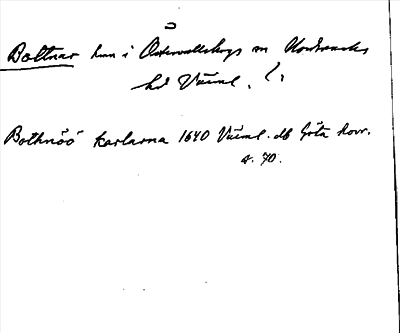 Boltnar hmn i Östervallskogs sn Nordmarks
hd Värml.
Bothnöö karlarna 1640 Värml. db Göta hovr.
s. 70.